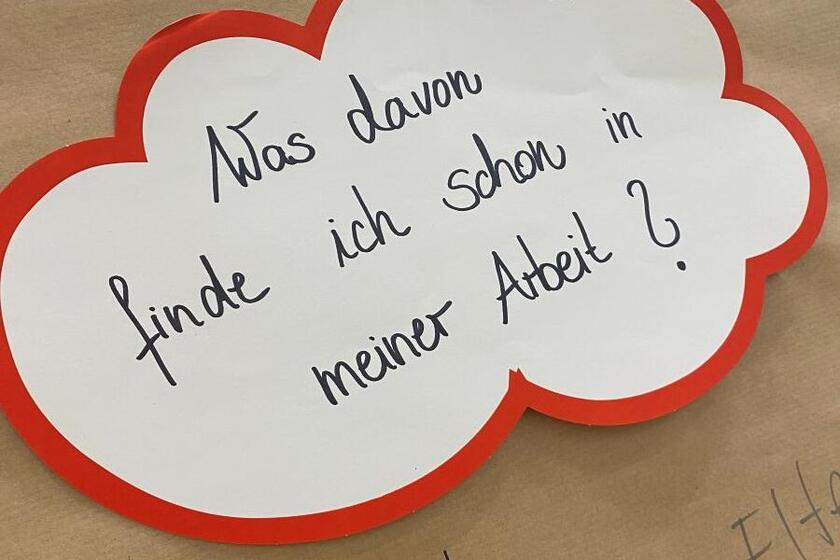 Was davon
finde ich schon in
meiner Arbeit?